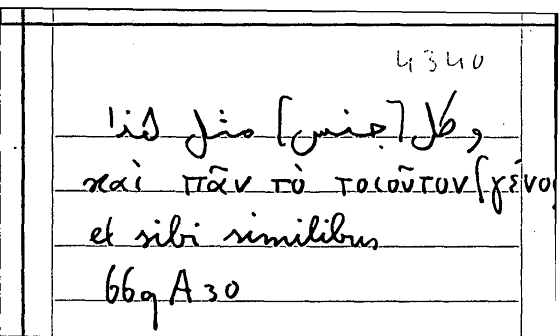 4340
وكل [جنس] مثل هذا
καὶ πᾶν τὸ τοιοῦτον [γένο
et sibi similibus
669 A 30